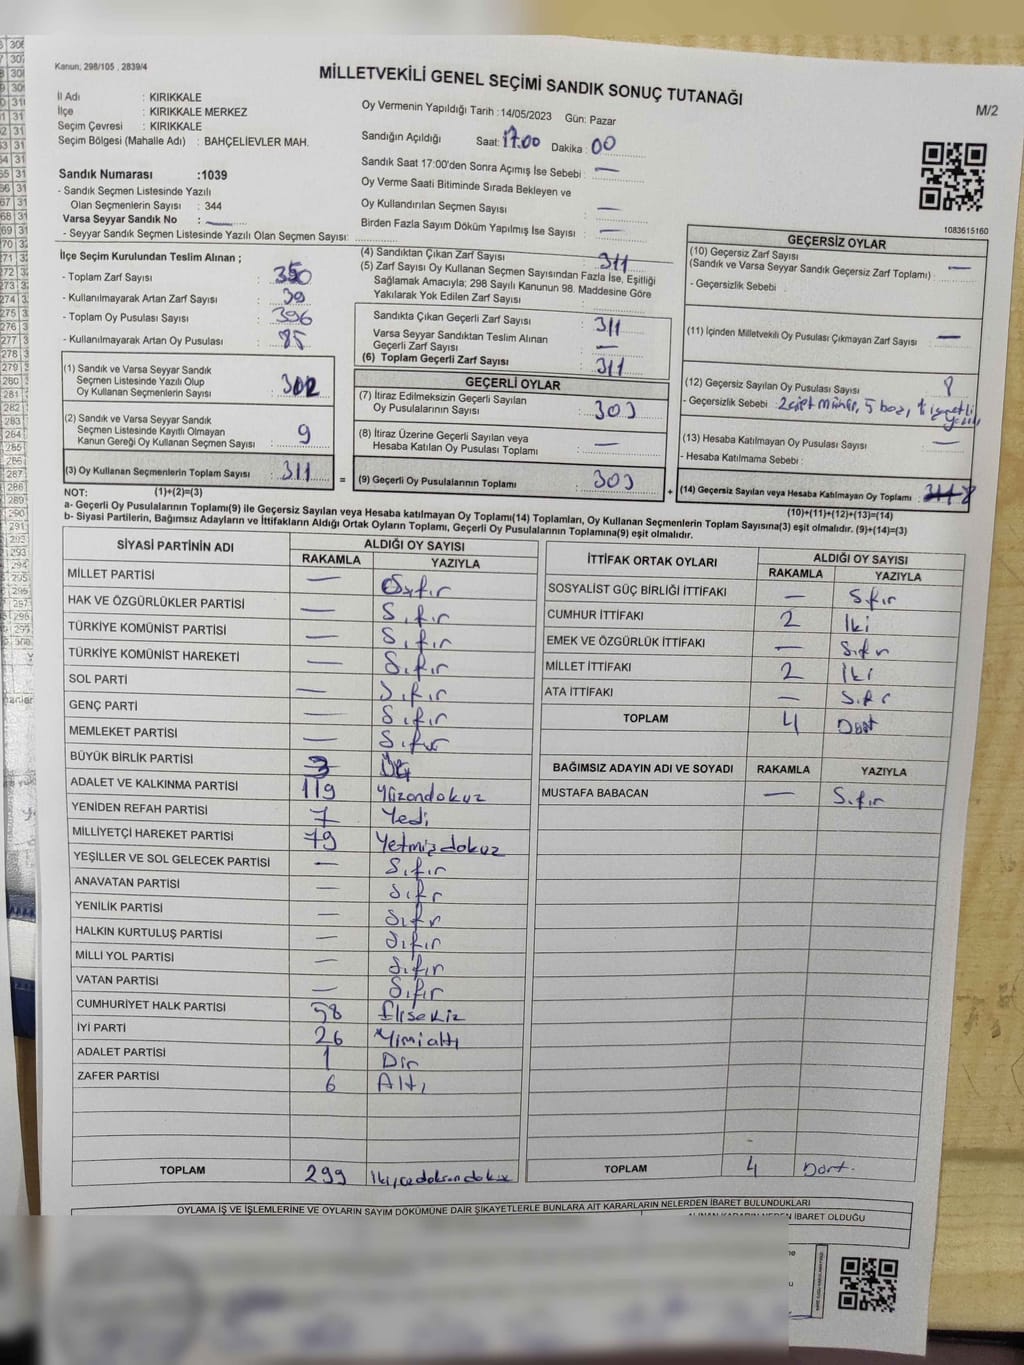 Kanun; 298/105 , 2839/4
MİLLETVEKİLİ GENEL SEÇİMİ SANDIK SONUÇ TUTANAĞI
M/2
İl Adı : KIRIKKALE
İlçe : KIRIKKALE MERKEZ
Seçim Çevresi : KIRIKKALE
Seçim Bölgesi (Mahalle Adı) : BAHÇELİEVLER MAH.
Sandık Numarası :1039
- Sandık Seçmen Listesinde Yazılı
Olan Seçmenlerin Sayısı : 344
Varsa Seyyar Sandık No : —
- Seyyar Sandık Seçmen Listesinde Yazılı Olan Seçmen Sayısı:
Oy Vermenin Yapıldığı Tarih :14/05/2023 Gün: Pazar
Sandığın Açıldığı Saat: 17.00 Dakika : 00
Sandık Saat 17:00'den Sonra Açımış İse Sebebi : —
Oy Verme Saati Bitiminde Sırada Bekleyen ve
Oy Kullandırılan Seçmen Sayısı : —
Birden Fazla Sayım Döküm Yapılmış İse Sayısı : —
1083615160
İlçe Seçim Kurulundan Teslim Alınan ;
- Toplam Zarf Sayısı : 350
- Kullanılmayarak Artan Zarf Sayısı : 39
- Toplam Oy Pusulası Sayısı : 396
- Kullanılmayarak Artan Oy Pusulası : 85
(1) Sandık ve Varsa Seyyar Sandık
Seçmen Listesinde Yazılı Olup
Oy Kullanan Seçmenlerin Sayısı : 302
(2) Sandık ve Varsa Seyyar Sandık
Seçmen Listesinde Kayıtlı Olmayan
Kanun Gereği Oy Kullanan Seçmen Sayısı : 9
(3) Oy Kullanan Seçmenlerin Toplam Sayısı : 311
(4) Sandıktan Çıkan Zarf Sayısı : 311
(5) Zarf Sayısı Oy Kullanan Seçmen Sayısından Fazla İse, Eşitliği
Sağlamak Amacıyla; 298 Sayılı Kanunun 98. Maddesine Göre
Yakılarak Yok Edilen Zarf Sayısı :
Sandıkta Çıkan Geçerli Zarf Sayısı : 311
Varsa Seyyar Sandıktan Teslim Alınan
Geçerli Zarf Sayısı : —
(6) Toplam Geçerli Zarf Sayısı : 311
GEÇERLİ OYLAR
(7) İtiraz Edilmeksizin Geçerli Sayılan
Oy Pusulalarının Sayısı : 303
(8) İtiraz Üzerine Geçerli Sayılan veya
Hesaba Katılan Oy Pusulası Toplamı : —
= (9) Geçerli Oy Pusulalarının Toplamı : 303
GEÇERSİZ OYLAR
(10) Geçersiz Zarf Sayısı
(Sandık ve Varsa Seyyar Sandık Geçersiz Zarf Toplamı) : —
- Geçersizlik Sebebi :
(11) İçinden Milletvekili Oy Pusulası Çıkmayan Zarf Sayısı : —
(12) Geçersiz Sayılan Oy Pusulası Sayısı : 8
- Geçersizlik Sebebi : 2 çift mühür, 5 boş, 1 işaretli
(13) Hesaba Katılmayan Oy Pusulası Sayısı : —
- Hesaba Katılmama Sebebi :
+ (14) Geçersiz Sayılan veya Hesaba Katılmayan Oy Toplamı : 8
NOT: (1)+(2)=(3)
(10)+(11)+(12)+(13)=(14)
a- Geçerli Oy Pusulalarının Toplamı(9) ile Geçersiz Sayılan veya Hesaba katılmayan Oy Toplamı(14) Toplamları, Oy Kullanan Seçmenlerin Toplam Sayısına(3) eşit olmalıdır. (9)+(14)=(3)
b- Siyasi Partilerin, Bağımsız Adayların ve İttifakların Aldığı Ortak Oyların Toplamı, Geçerli Oy Pusulalarının Toplamına(9) eşit olmalıdır.
SİYASİ PARTİNİN ADI ALDIĞI OY SAYISI
RAKAMLA YAZIYLA
MİLLET PARTİSİ — Sıfır
HAK VE ÖZGÜRLÜKLER PARTİSİ — Sıfır
TÜRKİYE KOMÜNİST PARTİSİ — Sıfır
TÜRKİYE KOMÜNİST HAREKETİ — Sıfır
SOL PARTİ — Sıfır
GENÇ PARTİ — Sıfır
MEMLEKET PARTİSİ — Sıfır
BÜYÜK BİRLİK PARTİSİ 3 Üç
ADALET VE KALKINMA PARTİSİ 119 Yüzondokuz
YENİDEN REFAH PARTİSİ 7 Yedi
MİLLİYETÇİ HAREKET PARTİSİ 79 Yetmişdokuz
YEŞİLLER VE SOL GELECEK PARTİSİ — Sıfır
ANAVATAN PARTİSİ — Sıfır
YENİLİK PARTİSİ — Sıfır
HALKIN KURTULUŞ PARTİSİ — Sıfır
MİLLİ YOL PARTİSİ — Sıfır
VATAN PARTİSİ — Sıfır
CUMHURİYET HALK PARTİSİ 58 Ellisekiz
İYİ PARTİ 26 Yirmialtı
ADALET PARTİSİ 1 Bir
ZAFER PARTİSİ 6 Altı
TOPLAM 299 İkiyüzdoksandokuz
İTTİFAK ORTAK OYLARI ALDIĞI OY SAYISI
RAKAMLA YAZIYLA
SOSYALİST GÜÇ BİRLİĞİ İTTİFAKI — Sıfır
CUMHUR İTTİFAKI 2 İki
EMEK VE ÖZGÜRLÜK İTTİFAKI — Sıfır
MİLLET İTTİFAKI 2 İki
ATA İTTİFAKI — Sıfır
TOPLAM 4 Dört
BAĞIMSIZ ADAYIN ADI VE SOYADI RAKAMLA YAZIYLA
MUSTAFA BABACAN — Sıfır
TOPLAM 4 Dört
OYLAMA İŞ VE İŞLEMLERİNE VE OYLARIN SAYIM DÖKÜMÜNE DAİR ŞİKAYETLERLE BUNLARA AİT KARARLARIN NELERDEN İBARET BULUNDUKLARI
ALINAN KARARIN NEDEN İBARET OLDUĞU